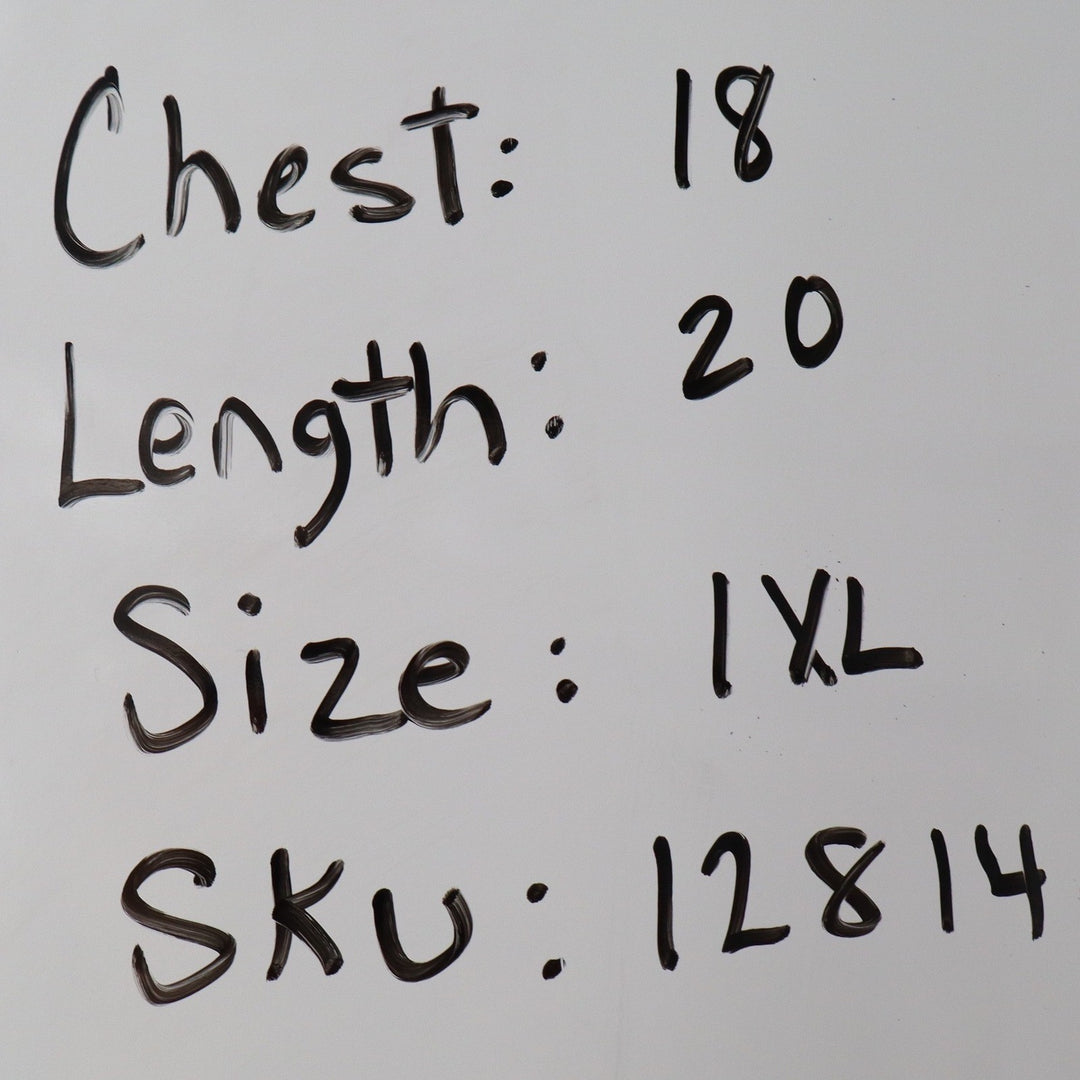 Chest: 18
Length: 20
Size: 1XL
SKU: 12814